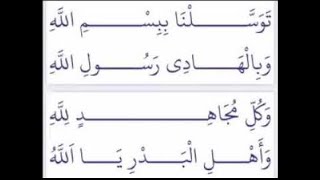 تَوَسَّلْنَا بِبِسْمِ اللَّهِ
وَبِالْهَادِى رَسُولِ اللَّهِ
وَكُلِّ مُجَاهِدٍ لِلَّهِ
وَأَهْلِ الْبَدْرِ يَا اَللَّهُ